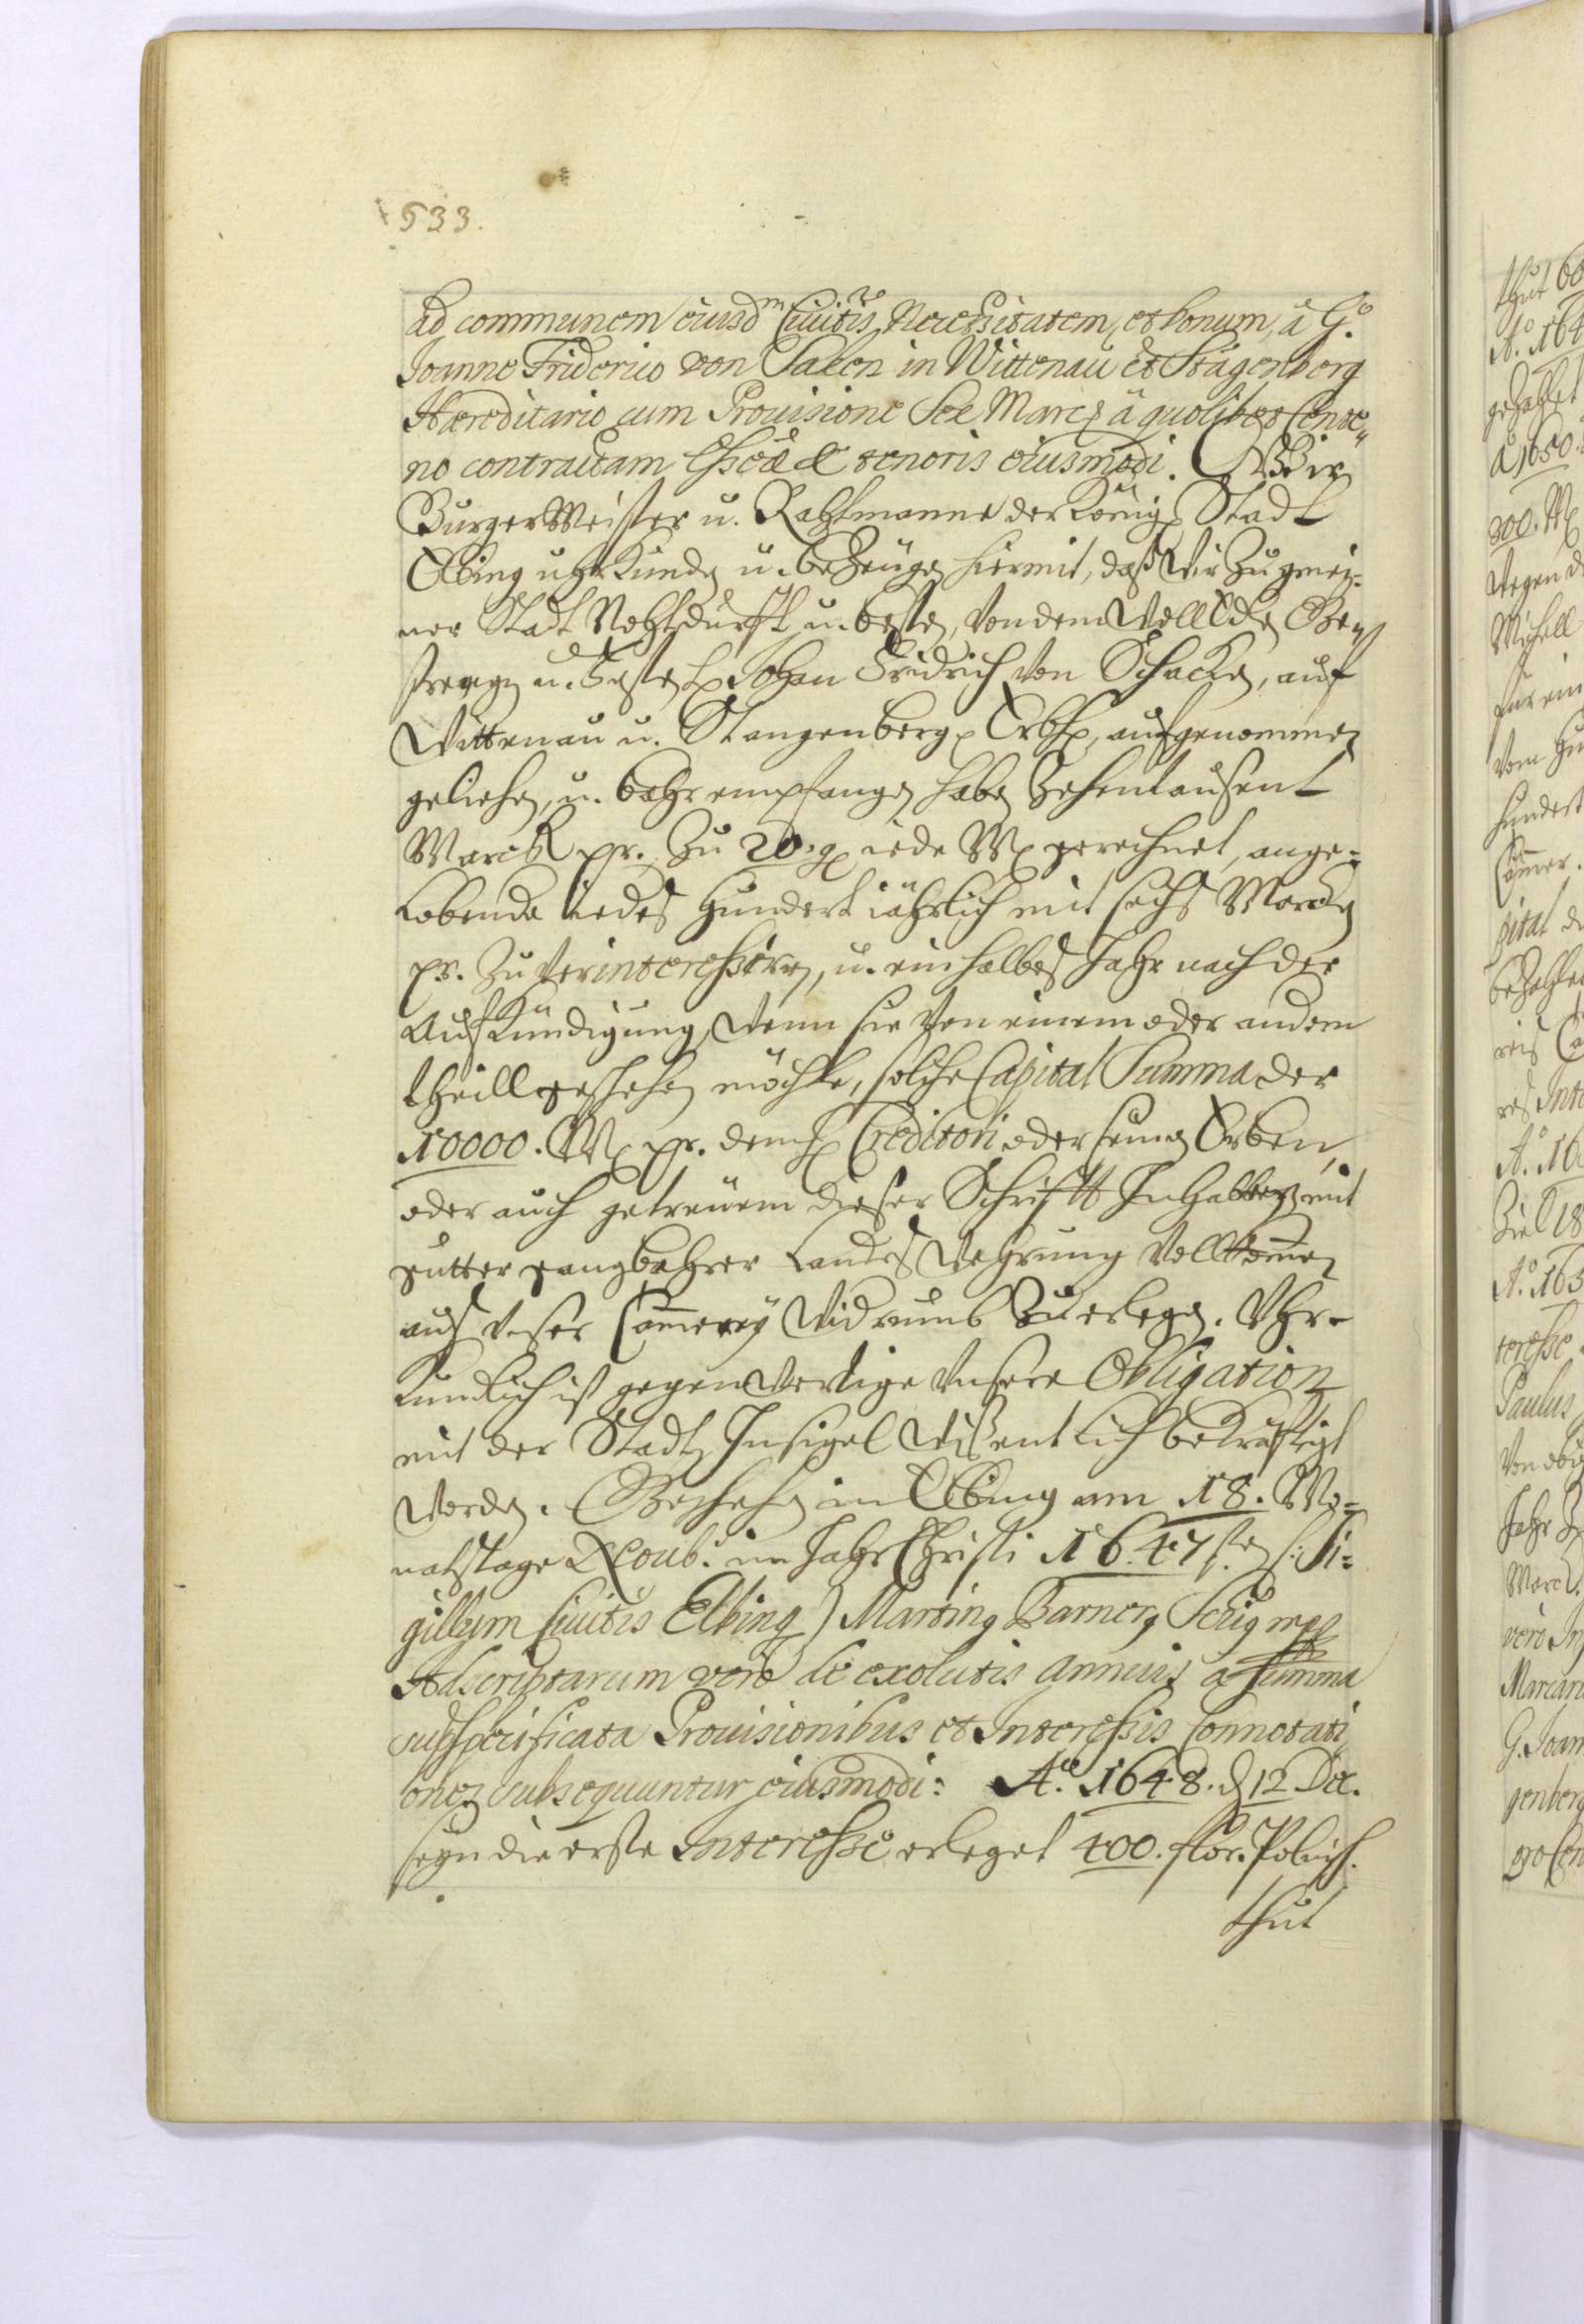 533.
ad communem eiusdm Ciuitis Necessitatem, et bonum, à Go.
Joanne Friderico von Saken in Wittenau et Stagenberg
Hæreditario cum Prouisione Sex Marcę à quolibet Cente„
no contractam Essed & tenoris eiusmodi. Wir
BurgerMeister u. Rahtmanne der König Stadt
Elbing uhrkunden u. bezeugen hiermit, daß wir zu gmei=
ner Stadt Nohtdurfft u. besten, von dem WollEdlen Ge
strengen u. Vesten H Johan Fridrich von Schacken, auf
Wittenau u. Stangenberg Erbh, aufgenommen
geliehen, u. bahr empfangen haben Zehentausent
Marck pr. zu 20. g iede M gerechnet, ange=
lobende iedes Hundert iährlich mit sechs Marcken
pr. zu verinteressiren, u. ein halbes Jahr nach der
Aufkundigung, wenn sie von einem oder andern
theill geschehen möchte, solche Capital Summa der
10000. M pr. dem H Creditori oder seinen Erben,
oder auch getreuem dieser Schrifft Inhabber mit
gutter gangbahrer Landes Wehrung Vollkommen
auß vnser Cammerey widrumb zu erlegen. Uhr-
kundlich ist gegenwertige vnsere Obligation
mit der Stadt Insigel wissentlich bekräfftigt
worden. Geschehen in Elbing am 18. Mo=
natstage Xbris im Jahr Christi 1647sten (: Si=
gillum Ciuitis Elbing) Marting Barnerg Secrig mpp
Adscriptarum verò de exolutis annuis à summa
supspecificata Prouisionibus et Interessis Connotati
ones subsequuntur eiusmodi: Ao. 1648. d 12 Dec.
seyn die erste Interesse erleget 400. flor. Polnisch.
thut